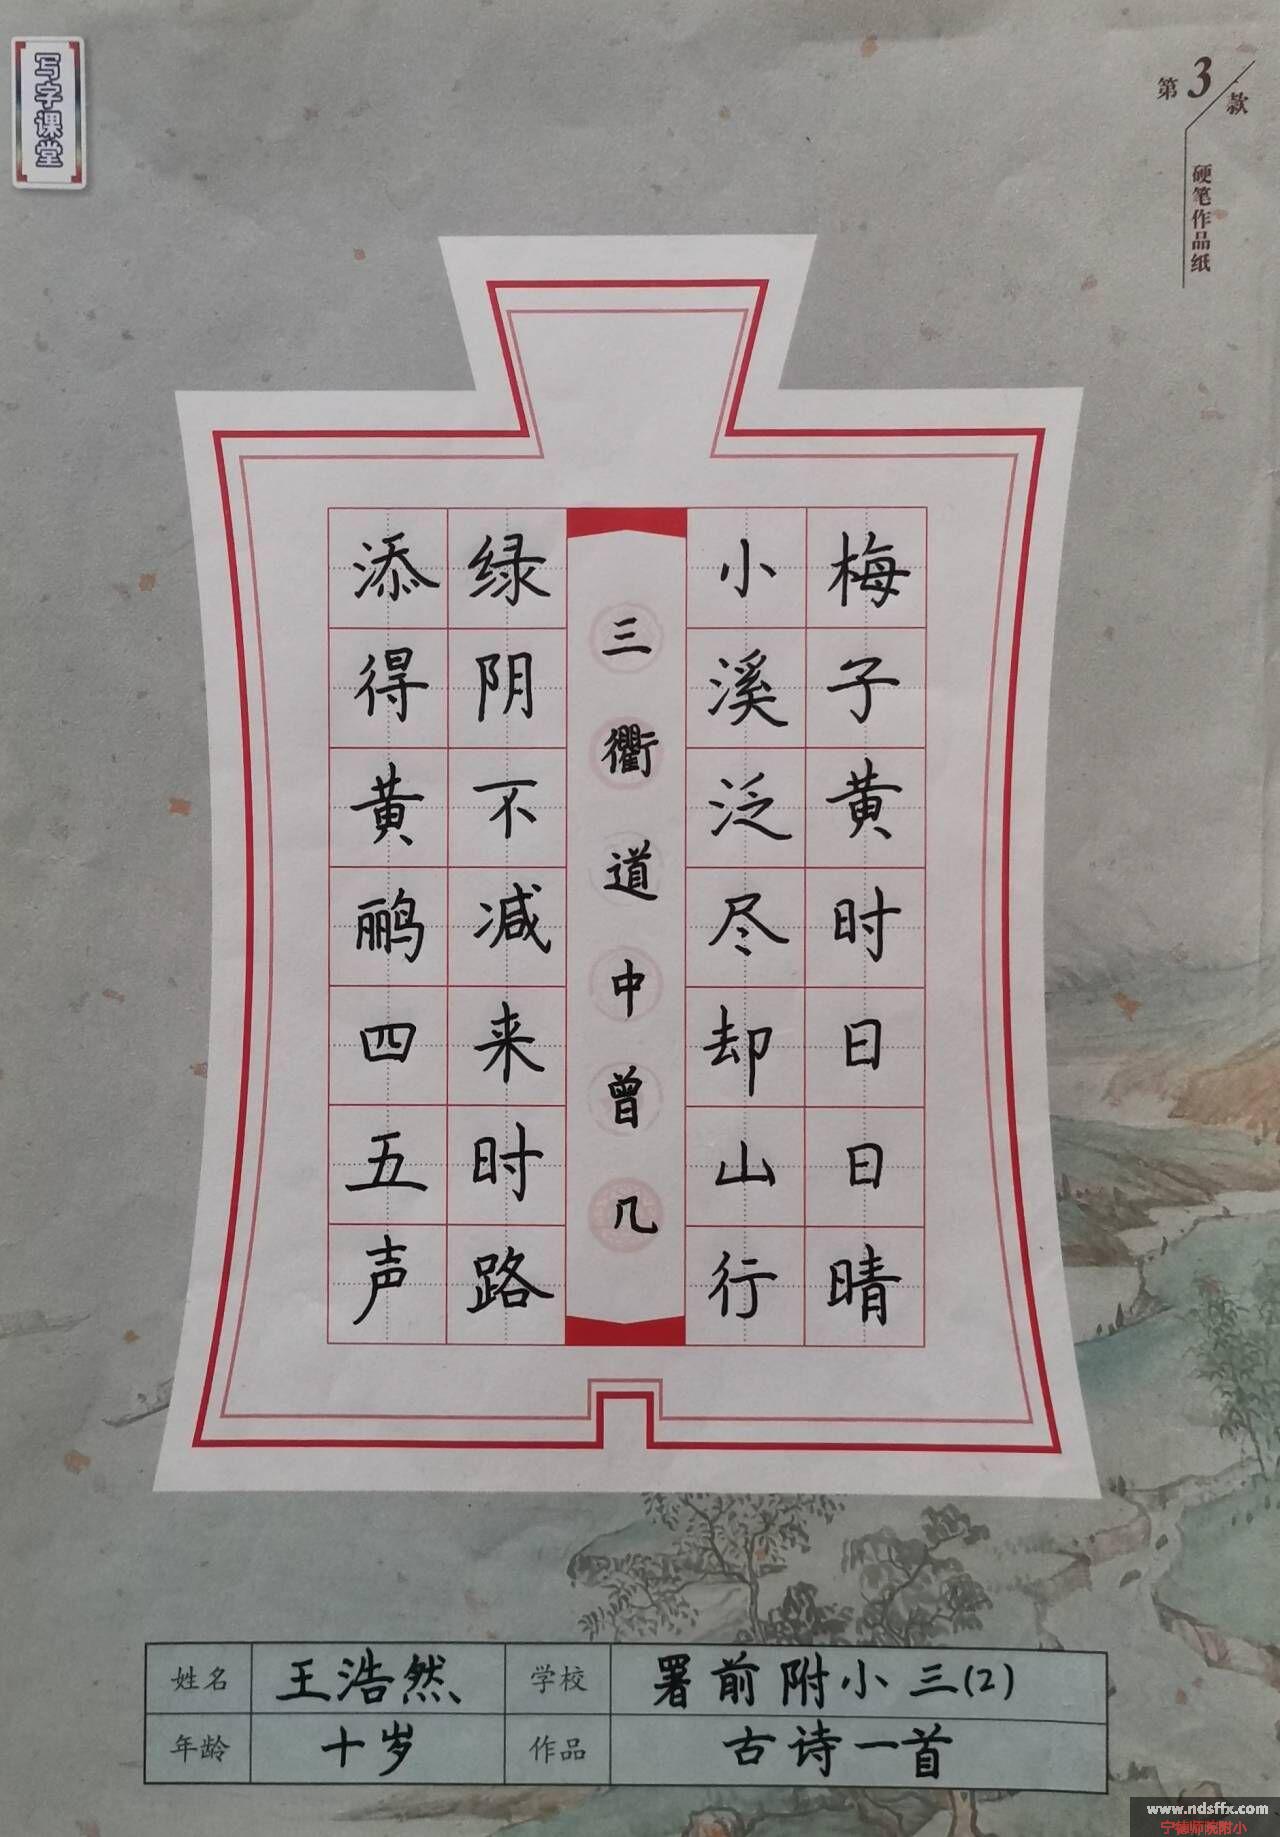 写字课堂
第3款
硬笔作品纸
梅子黄时日日晴
小溪泛尽却山行
三衢道中曾几
绿阴不减来时路
添得黄鹂四五声
姓名 王浩然 学校 署前附小三(2)
年龄 十岁 作品 古诗一首
www.ndsffx.com
宁德师院附小